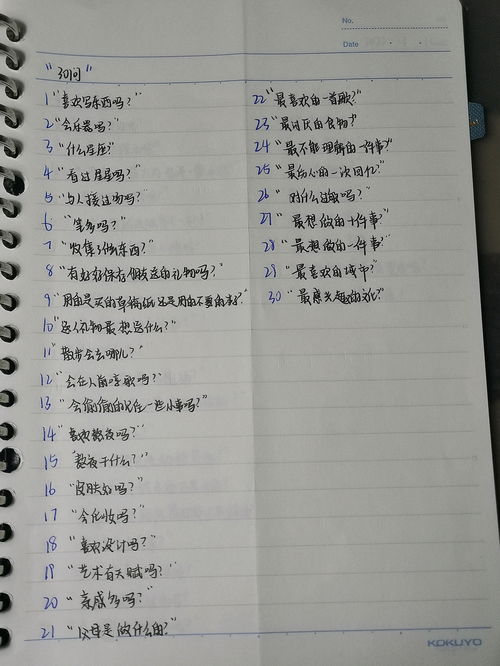 No.
Date
"30问"
1 "喜欢写东西吗？"
2 "会乐器吗？"
3 "什么星座？"
4 "看过星星吗？"
5 "与人接过吻吗？"
6 "笔多吗？"
7 "收集了什么东西？"
8 "有好好保存别人送的礼物吗？"
9 "用的是买的草稿纸还是用不要的本子？"
10 "送人礼物最想送什么？"
11 "散步会去哪儿？"
12 "会在人前唱歌吗？"
13 "会偷偷的记住一些小事吗？"
14 "喜欢熬夜吗？"
15 "熬夜干什么？"
16 "皮肤好吗？"
17 "会化妆吗？"
18 "喜欢设计吗？"
19 "艺术有天赋吗？"
20 "亲戚多吗？"
21 "父母是做什么的？"
22 "最喜欢的一首歌？"
23 "最讨厌的食物？"
24 "最不能理解的一件事？"
25 "最伤心的一次回忆？"
26 "对什么过敏吗？"
27 "最想做的十件事？"
28 "最想做的一件事？"
29 "最喜欢的城市？"
30 "最感兴趣的文化？"
KOKUYO